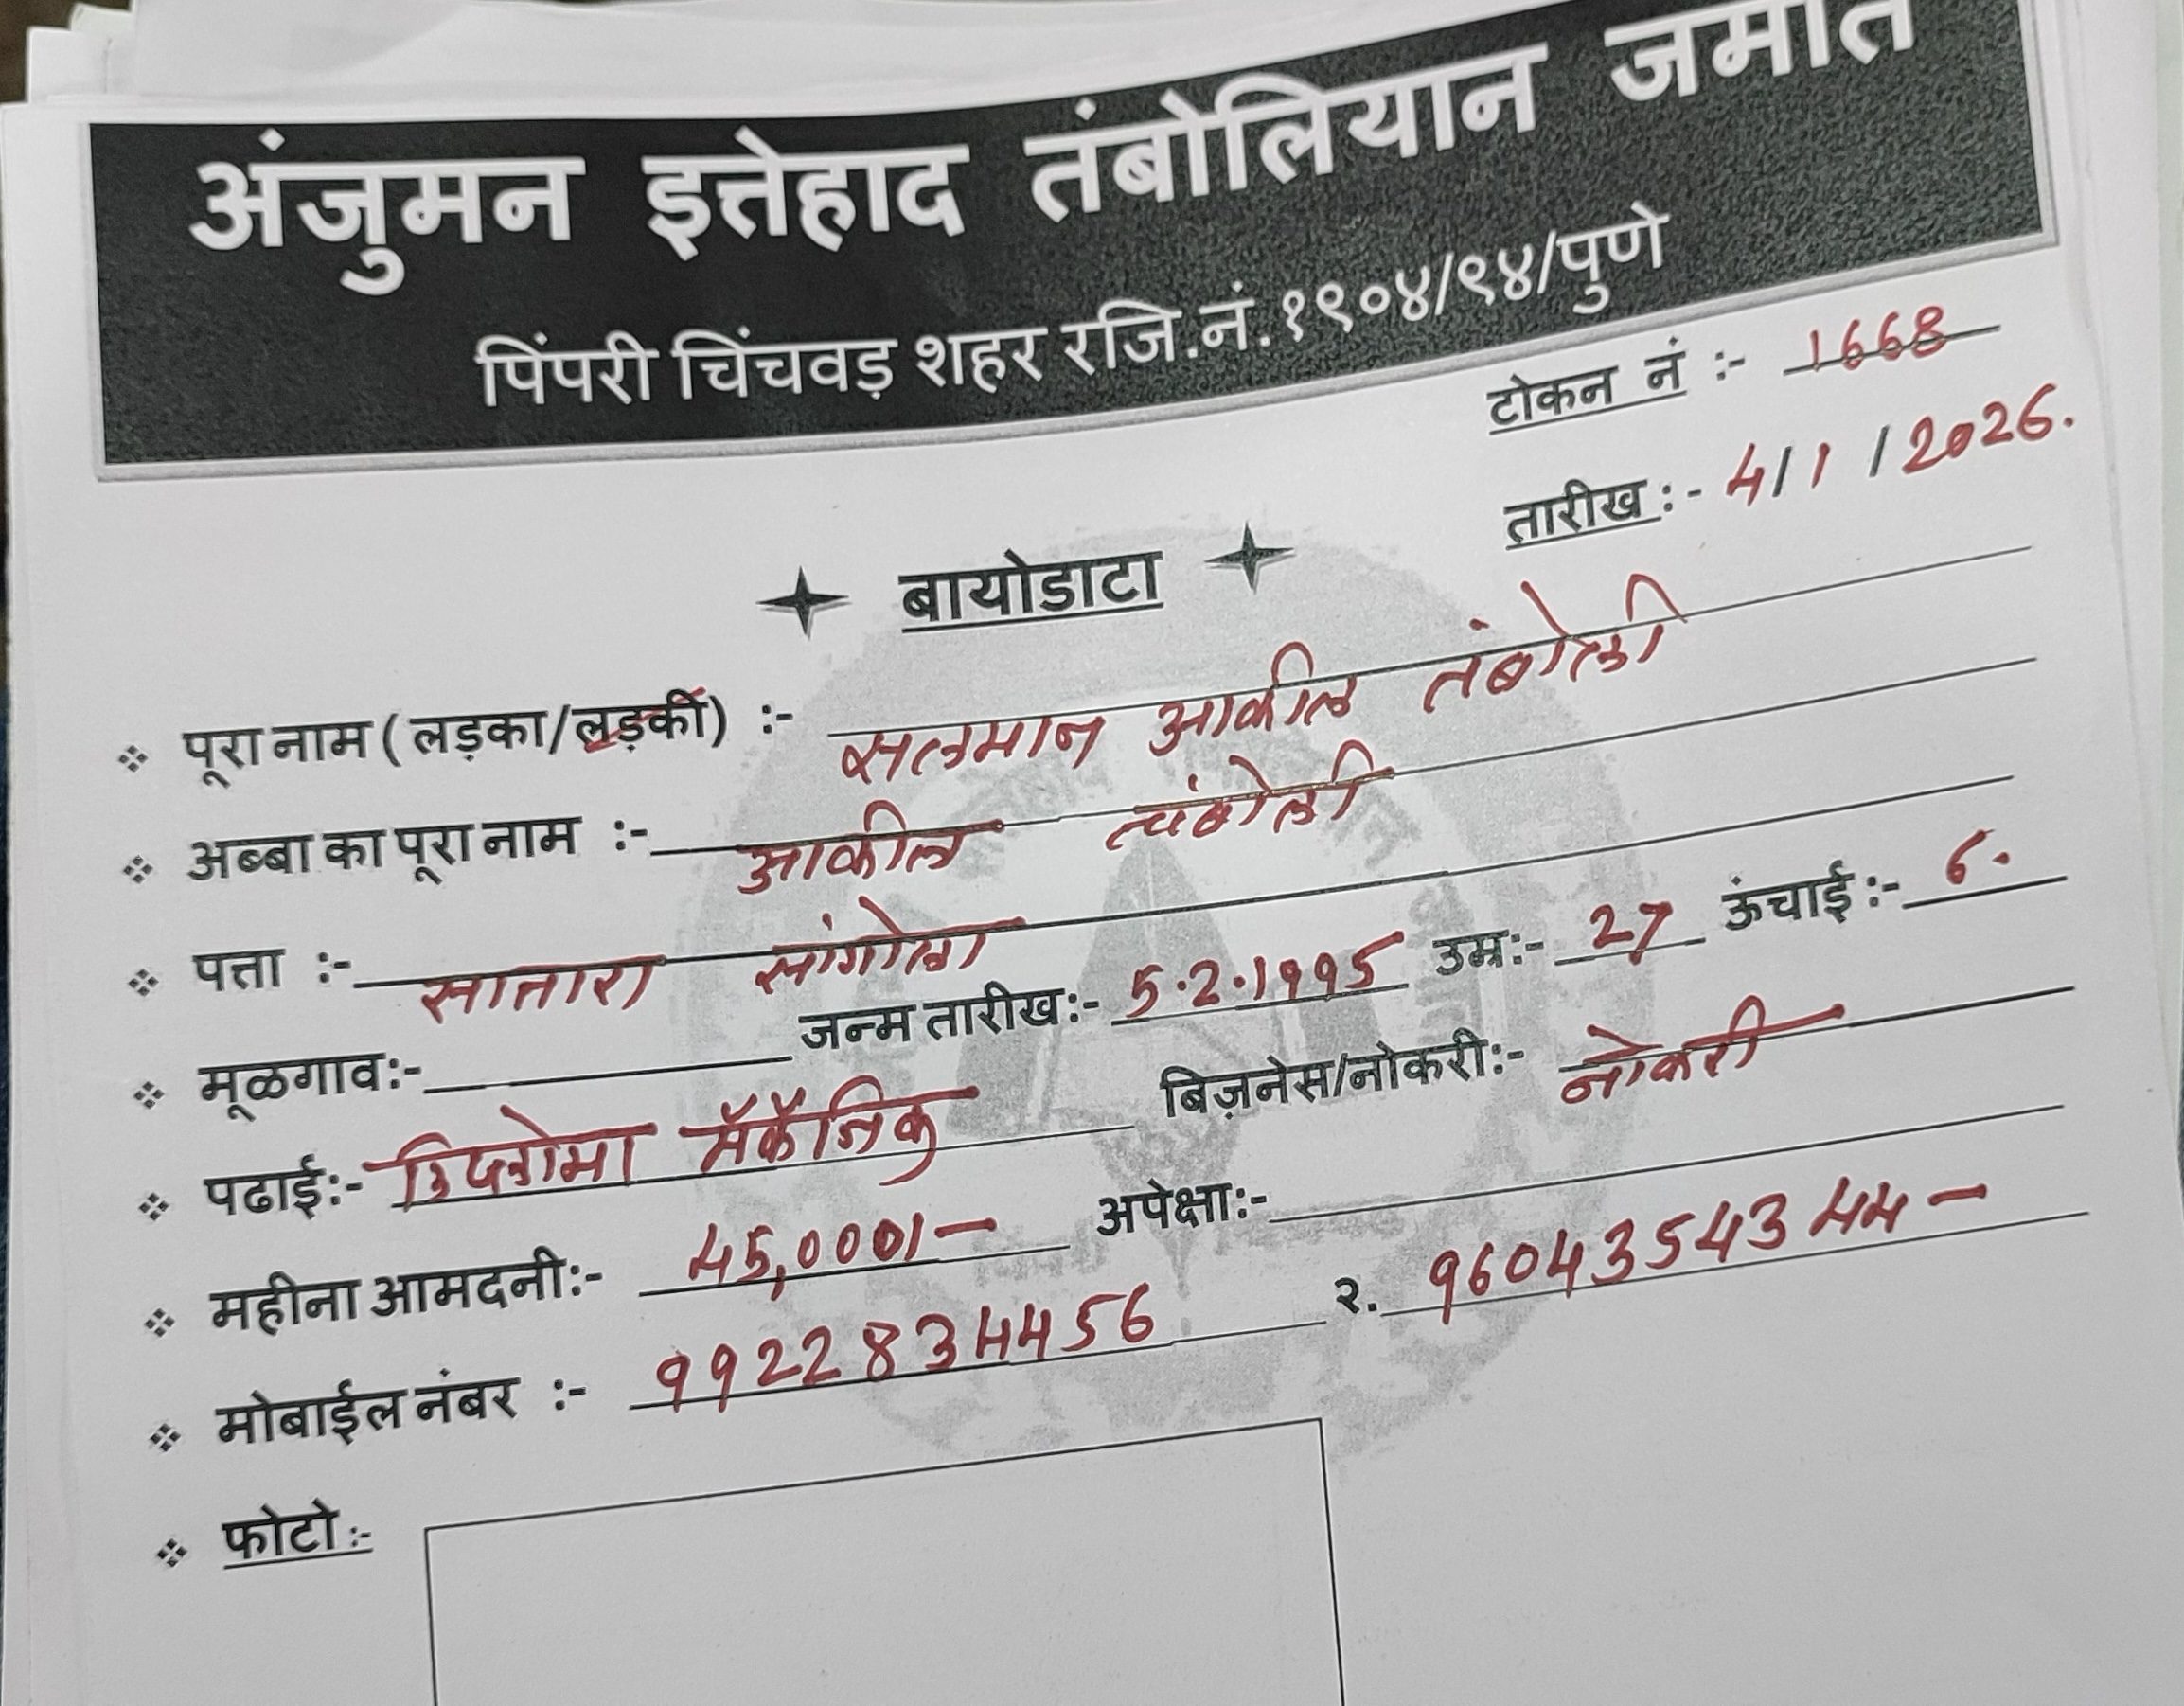 अंजुमन इत्तेहाद तंबोलियान जमात
पिंपरी चिंचवड़ शहर रजि.नं.१९०४/९४/पुणे
टोकन नं :- 1668
तारीख :- 4/1/2026.
बायोडाटा
पूरा नाम ( लड़का/लड़की) :- सलमान आकील तंबोली
अब्बा का पूरा नाम :- आकील तंबोली
पत्ता :- सातारा सांगोला
मूळगाव:- जन्म तारीख:- 5.2.1995 उम्र:- 27 ऊंचाई:- 6.
पढाई:- डिप्लोमा मॅकॅनिक बिज़नेस/नोकरी:- नोकरी
महीना आमदनी:- 45,000/- अपेक्षा:-
मोबाईल नंबर :- 9922834456 २.9604354344-
फोटो:-